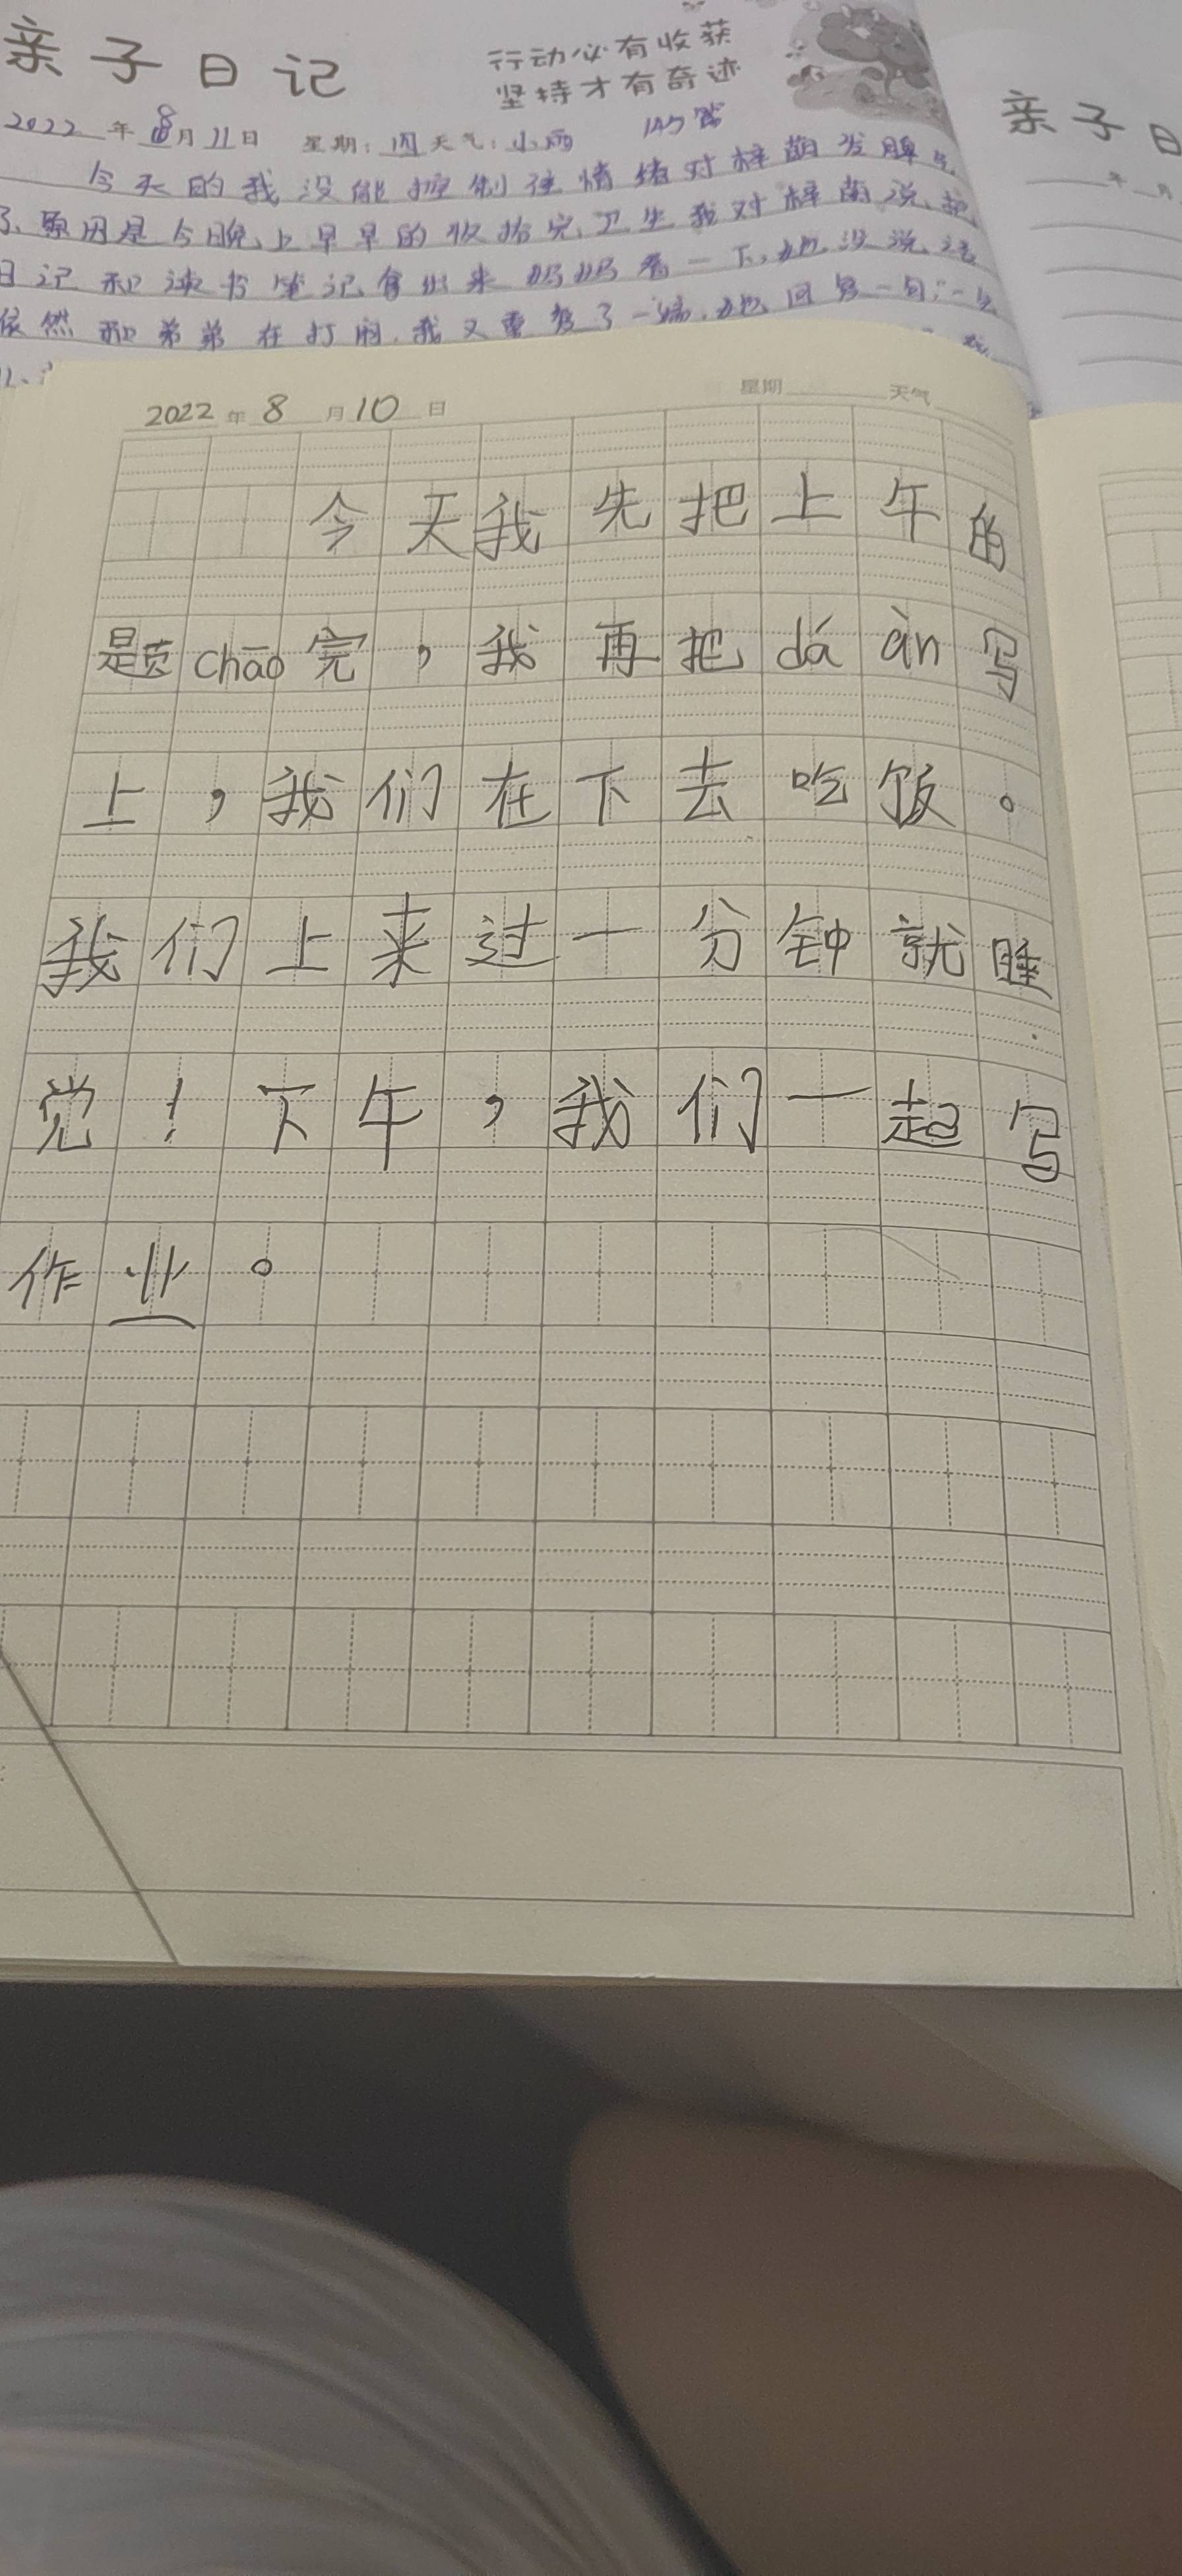 亲子日记
行动必有收获
坚持才有奇迹
2022年8月11日 星期:四 天气:小雨
今天的我没能控制住情绪对梓萌发脾气
了、原因是今晚上早早的收拾完卫生我对梓萌说、把
日记和读书笔记拿出来妈妈看一下,她没说话
依然和弟弟在打闹,我又重复了一遍.她回
亲子日
年 月
2022年8月10日 星期 天气
今天我先把上午的
题chāo完,我再把dá àn写
上,我们在下去吃饭。
我们上来过一分钟就睡
觉!下午,我们一起写
作业。